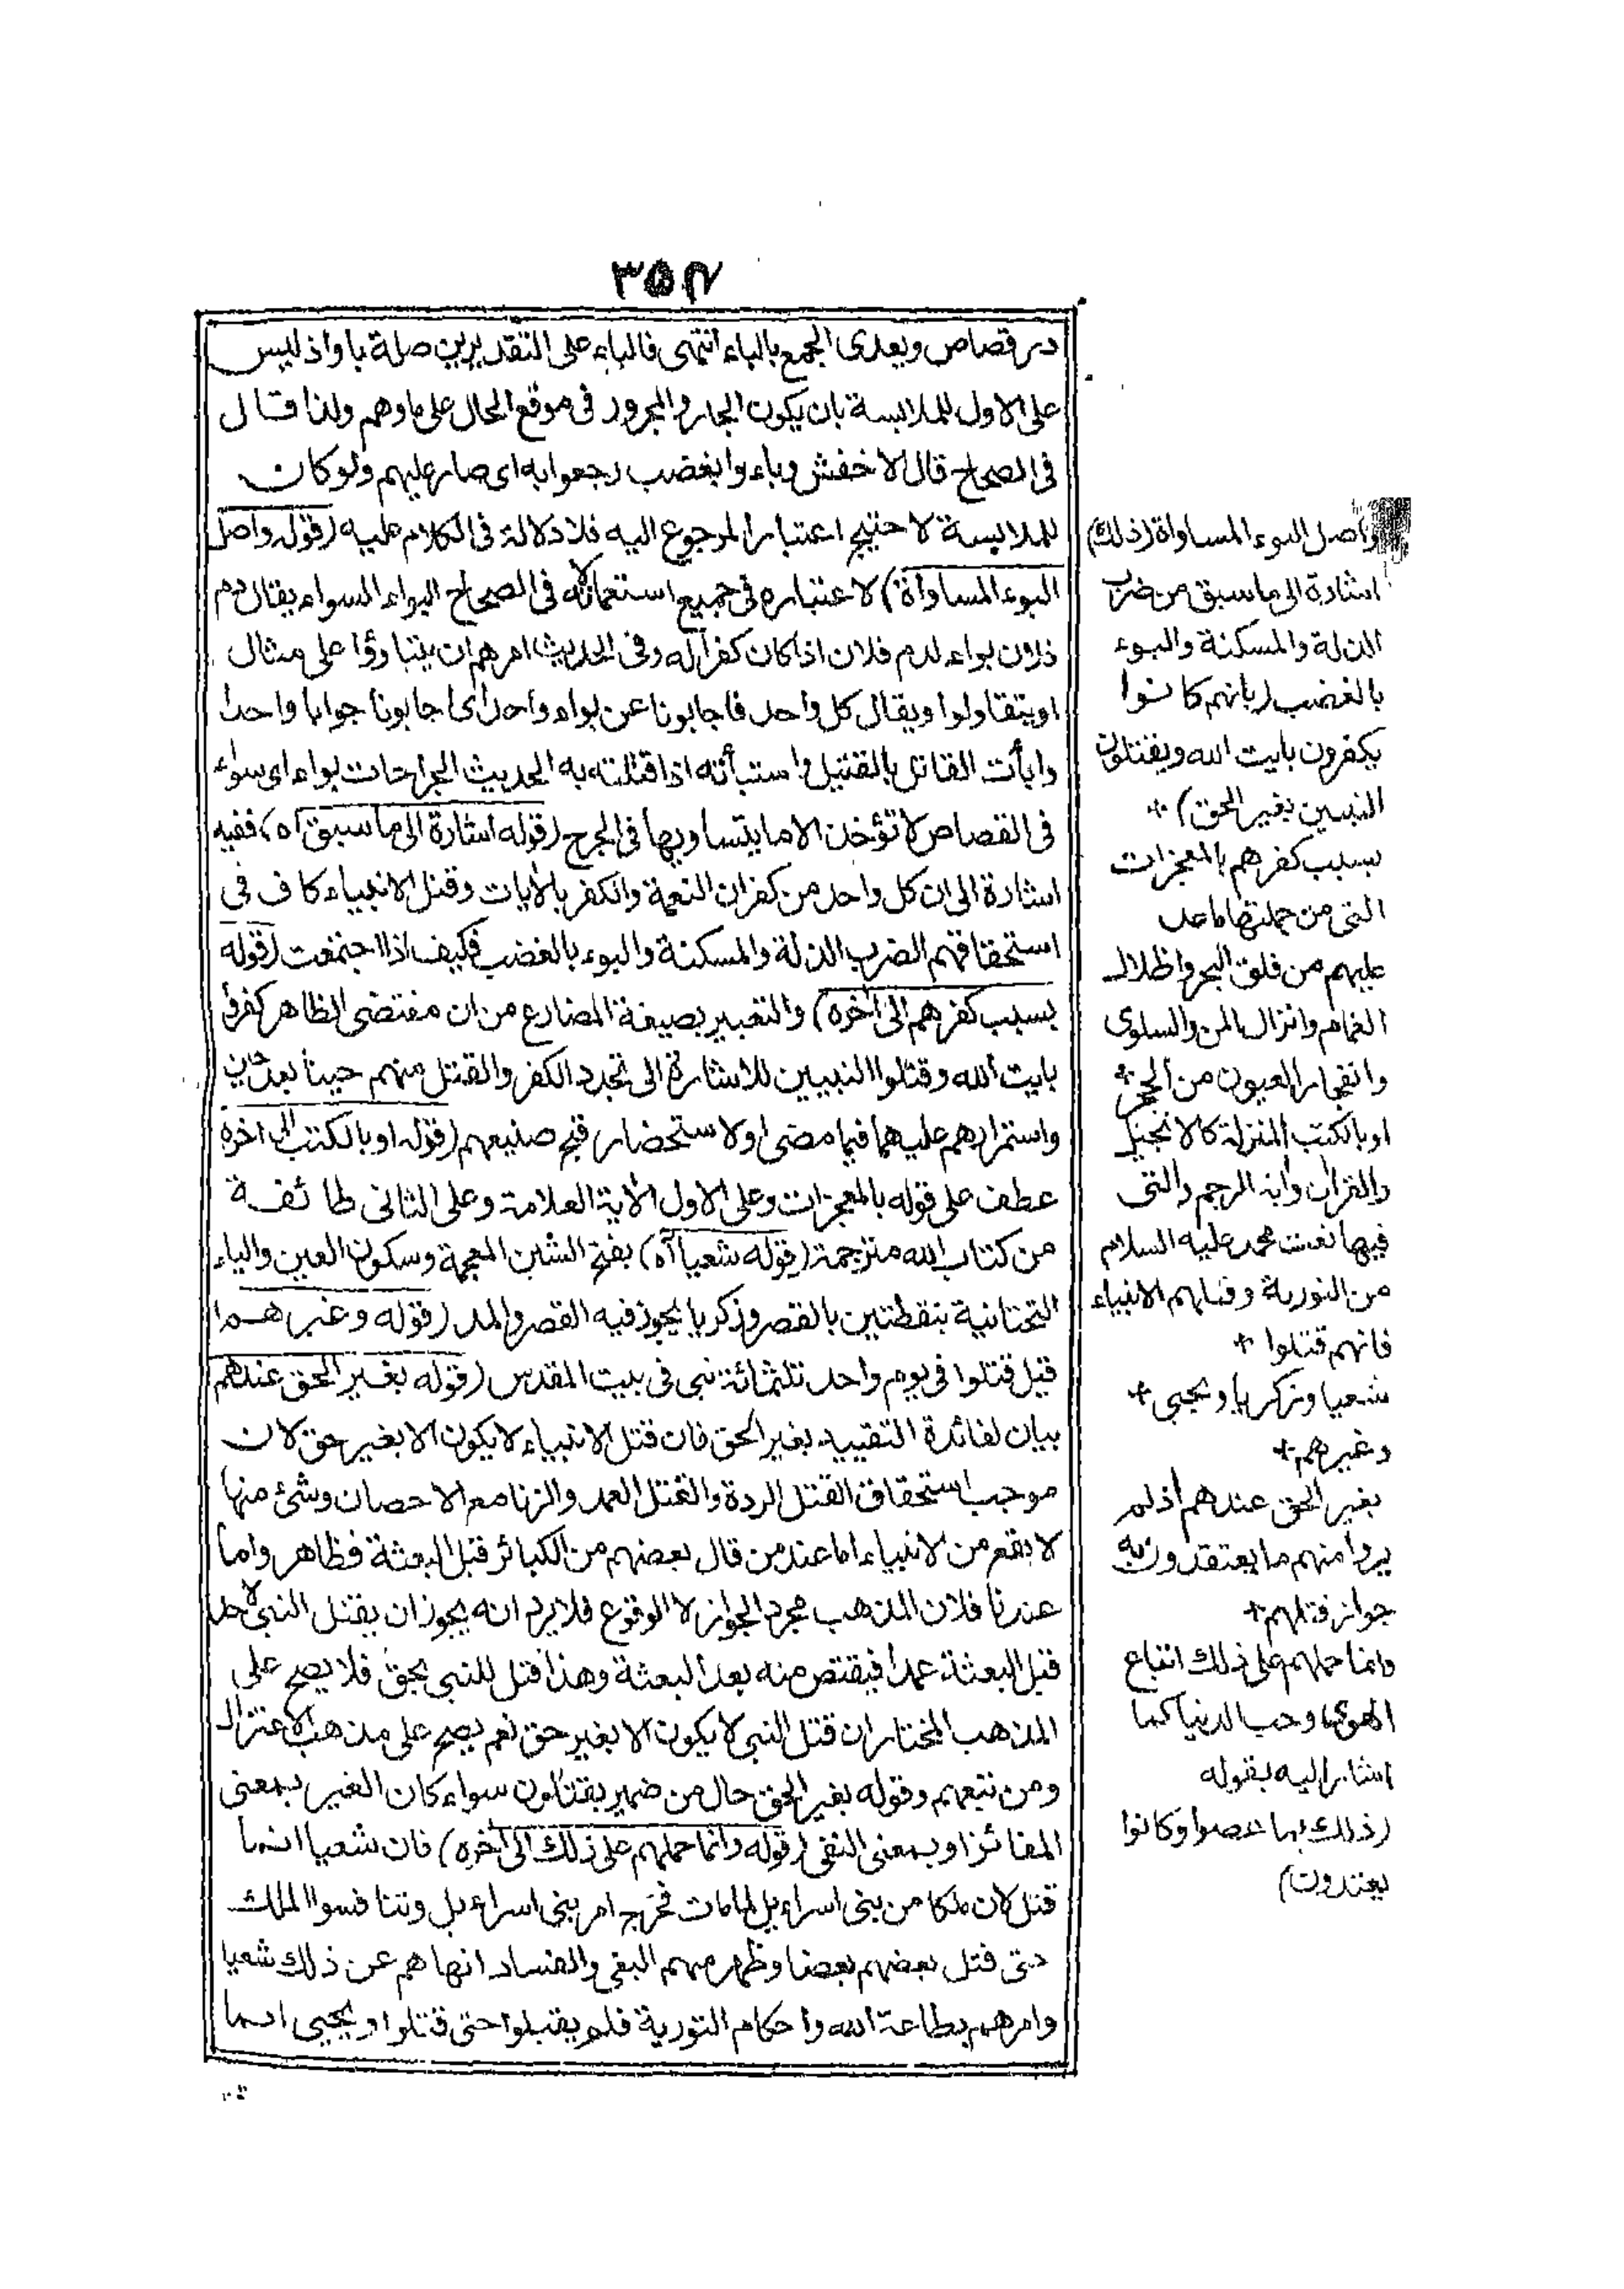 ٣٥٢
در قصاص ويعدى الجمع بالباء انتهى فالباء على التقديرين صلة باؤا ذليس
على الاول للملابسة بان يكون الجار والمجرور فى موقع الحال على ما وهم ولذا قال
فى الصحاح قال الاخفش وباءوا بغضب رجعوا به اى صار عليهم ولو كان
للملابسة لاحتيج اعتبار المرجوع اليه فلا دلالة فى الكلام عليه (قوله واصل
البوء المساواة) لاعتباره فى جميع استعمالاته فى الصحاح البواء السواء يقال دم
فلان بواء لدم فلان اذا كان كفرا له وفى الحديث امرهم ان يتباوؤا على مثال
او يتقاولوا ويقال كل واحد فاجابونا عن بواء واحد اى اجابونا جوابا واحدا
وابأت القاتل بالقتيل واستبأته اذا قتلته به الحديث الجراحات بواء اى سواء
فى القصاص لا تؤخذ الا ما يتساويها فى الجرح (قوله اشارة الى ما سبق اه) ففيه
اشارة الى ان كل واحد من كفران النعمة والكفر بالايات وقتل الانبياء كاف فى
استحقاقهم الضرب الذلة والمسكنة والبوء بالغضب فكيف اذا اجتمعت (قوله
بسبب كفرهم الى اخره) والتعبير بصيغة المضارع من ان مقتضى الظاهر كفروا
بايت الله وقتلوا النبيين للاشارة الى تجدد الكفر والقتل منهم حينا بعد حين
واستمرارهم عليهما فيما مضى او لاستحضار قبح صنيعهم (قوله او بالكتب الى اخره
عطف على قوله بالمعجزات وعلى الاول الاية العلامة وعلى الثانى طائفة
من كتاب الله مترجمة (قوله شعيا اه) بفتح الشين المعجمة وسكون العين والياء
التحتانية بنقطتين بالقصر وزكريا يجوز فيه القصر والمد (قوله وغيرهما
قيل قتلوا فى يوم واحد ثلثمائة نبى فى بيت المقدس (قوله بغير الحق عندهم
بيان لفائدة التقييد بغير الحق فان قتل الانبياء لا يكون الا بغير حق لان
موجب استحقاق القتل الردة والقتل العمد والزنا مع الاحصان وشئ منها
لا يقع من الانبياء اما عند من قال بعضهم من الكبائر قبل البعثة فظاهر واما
عندنا فلان المذهب مجرد الجواز لا الوقوع فلا يرد انه يجوز ان يقتل النبى لاحد
قبل البعثة عمدا فيقتص منه بعد البعثة وهذا قتل للنبى بحق فلا يصح على
المذهب المختار ان قتل النبى لا يكون الا بغير حق نعم يصح على مذهب الاعتزال
ومن تبعهم وقوله بغير الحق حال من ضمير يقتلون سواء كان الغير بمعنى
المغائر او بمعنى النفى (قوله وانما حملهم على ذلك الى اخره) فان شعيا انما
قتل لان ملكا من بنى اسراءيل لما مات فخرج امر بنى اسراءيل وتنافسوا الملك
حتى قتل بعضهم بعضا وظهر منهم البغى والفساد انهاهم عن ذلك شعيا
وامرهم بطاعة الله واحكام التورية فلم يقبلوا حتى قتلوا ويحيى انما
واصل البوء المساواة (ذلك)
اشارة الى ما سبق من ضرب
الذلة والمسكنة والبوء
بالغضب (بانهم كانوا
يكفرون بايت الله ويقتلون
النبيين بغير الحق) +
بسبب كفرهم بالمعجزات
التى من جملتها ما عد
عليهم من فلق البحر واظلال
الغمام وانزال المن والسلوى
وانفجار العيون من الحجر +
او بالكتب المنزلة كالانجيل
والقران واية الرجم والتى
فيها نعت محمد عليه السلام
من التورية وقتلهم الانبياء
فانهم قتلوا +
شعيا وزكريا ويحيى +
وغيرهم +
بغير الحق عندهم اذ لم
يروا منهم ما يعتقدون به
جواز قتلهم +
وانما حملهم على ذلك اتباع
الهوى وحب الدنيا كما
اشار اليه بقوله
(ذلك بما عصوا وكانوا
يعتدون)